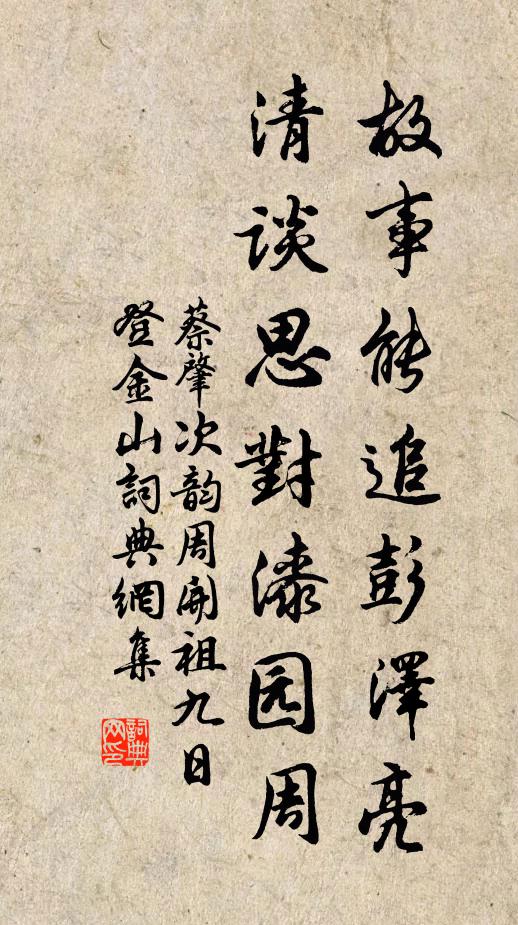 故事能追彭澤亮
清談思對漆园周
蔡肇次韵周開祖九日
登金山詞典網集
詞典网印